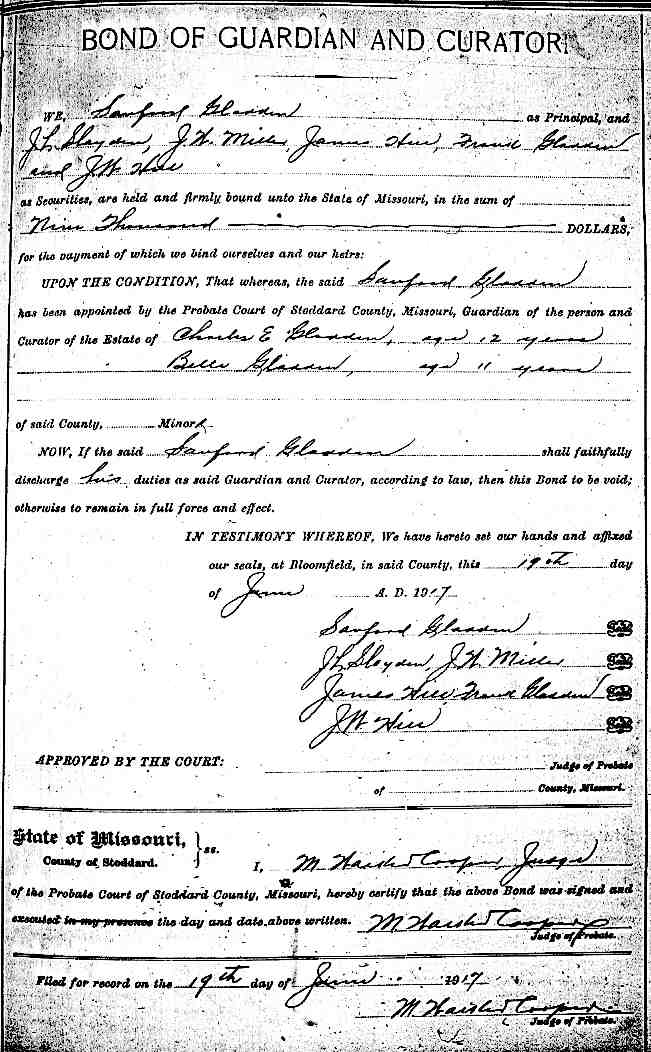 BOND OF GUARDIAN AND CURATOR.
WE, Sanford Gladden as Principal, and
J L Slayden, J. W. Miller, James Hill, Frank Gladden
and J W Hill
as Securities, are held and firmly bound unto the State of Missouri, in the sum of
Nine Thousand DOLLARS,
for the payment of which we bind ourselves and our heirs:
UPON THE CONDITION, That whereas, the said Sanford Gladden
has been appointed by the Probate Court of Stoddard County, Missouri, Guardian of the person and
Curator of the Estate of Charles E Gladden, age 12 years
Belle Gladden, age 11 years
of said County, Minors
NOW, If the said Sanford Gladden shall faithfully
discharge his duties as said Guardian and Curator, according to law, then this Bond to be void;
otherwise to remain in full force and effect.
IN TESTIMONY WHEREOF, We have hereto set our hands and affixed
our seals, at Bloomfield, in said County, this 19th day
of June A. D. 1917
Sanford Gladden Seal
J L Slayden, J. W. Miller Seal
James Hill, Frank Gladden Seal
J W Hill Seal
APPROVED BY THE COURT: Judge of Probate
of County, Missouri.
State of Missouri, } ss.
County of Stoddard.
I, M Cooper, Judge
of the Probate Court of Stoddard County, Missouri, hereby certify that the above Bond was signed and
executed in my presence the day and date above written. M Cooper
Judge of Probate.
Filed for record on the 19th day of June 1917
M Cooper
Judge of Probate.